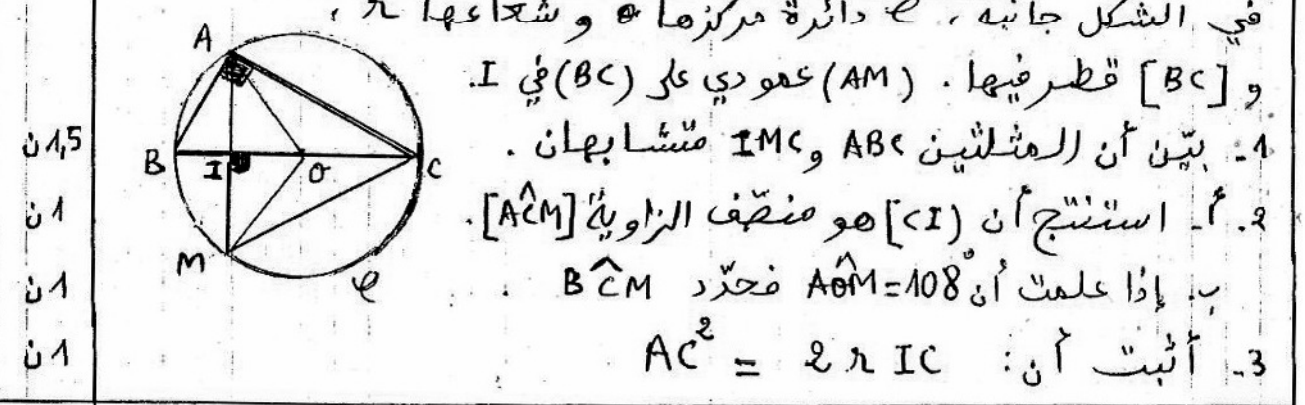 في الشكل جانبه، 𝒞 دائرة مركزها O و شعاعها r،
و [BC] قطر فيها. (AM) عمودي على (BC) في I.
1,5ن
1- بيّن أن المثلثين ABC و IMC متشابهان.
1ن
2. أ- استنتج أن [CI) هو منصّف الزاوية [AĈM].
1ن
ب- إذا علمت أن AÔM=108° فحدّد BĈM.
1ن
3- أثبت أن: AC² = 2r IC
A
B
I
O
C
M
𝒞